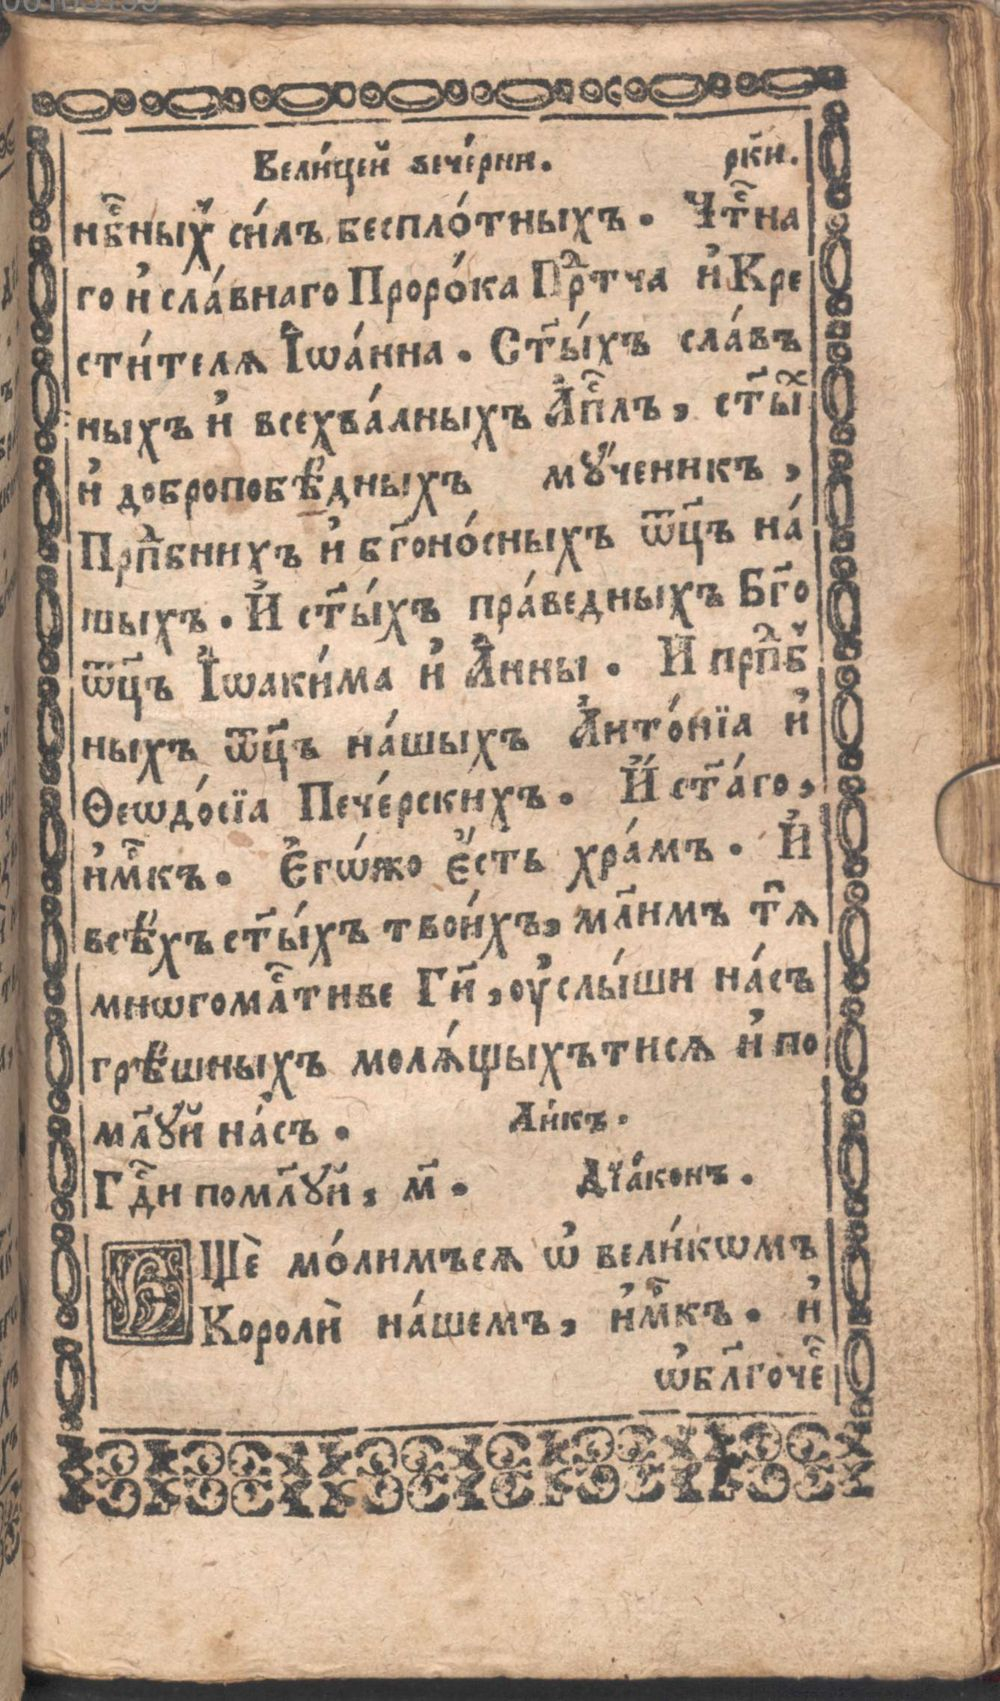 Вели́цей вече́рни. рк҃и.
нб҇ных̾ си́лъ беспло́тныхъ. Чт҇на
го и҆ сла́внаго Проро́ка Прⷣтча и҆ Кре
сти́телѧ І҆ѡа́нна. Ст҃ы́хъ сла́въ
ныхъ и҆ всехва́лныхъ А҆п҇лъ, ст҃ыⷯ
и҆ добропобѣ́дныхъ мꙋ́ченикъ,
Прпⷣбнихъ и҆ бг҃оно́сныхъ ѿц҃ъ на́
шыхъ. И҆ ст҃ы́хъ пра́ведныхъ Бг҃о
ѿц҃ъ І҆ѡаки́ма и҆ А҆́нны. И прпⷣб
ныхъ ѿц҃ъ на́шыхъ А҆нто́нїа и҆
Ѳеѡдо́сїа Пече́рскихъ. И҆ ст҃а́го,
и҆м҇къ. Є҆гѡ́жо є҆́сть хра́мъ. И҆
всѣ́хъ ст҃ы́хъ твои́хъ, мл҃имъ т҇ѧ
мнѡгомлⷭ҇тиве Гн҃, оу҆слы́ши на́съ
грѣ́шныхъ молѧ́щыхътисѧ и҆ по
мл҃ꙋй на́съ. Ли́къ.
Гдⷭ҇и помл҃ꙋй, м҃. Дїа́конъ.
Єщѐ мо́лимъсѧ ѡ҆ вели́кѡмъ
Королѝ на́шемъ, и҆м҇къ. и҆
ѡ҆бл҃гоче҇